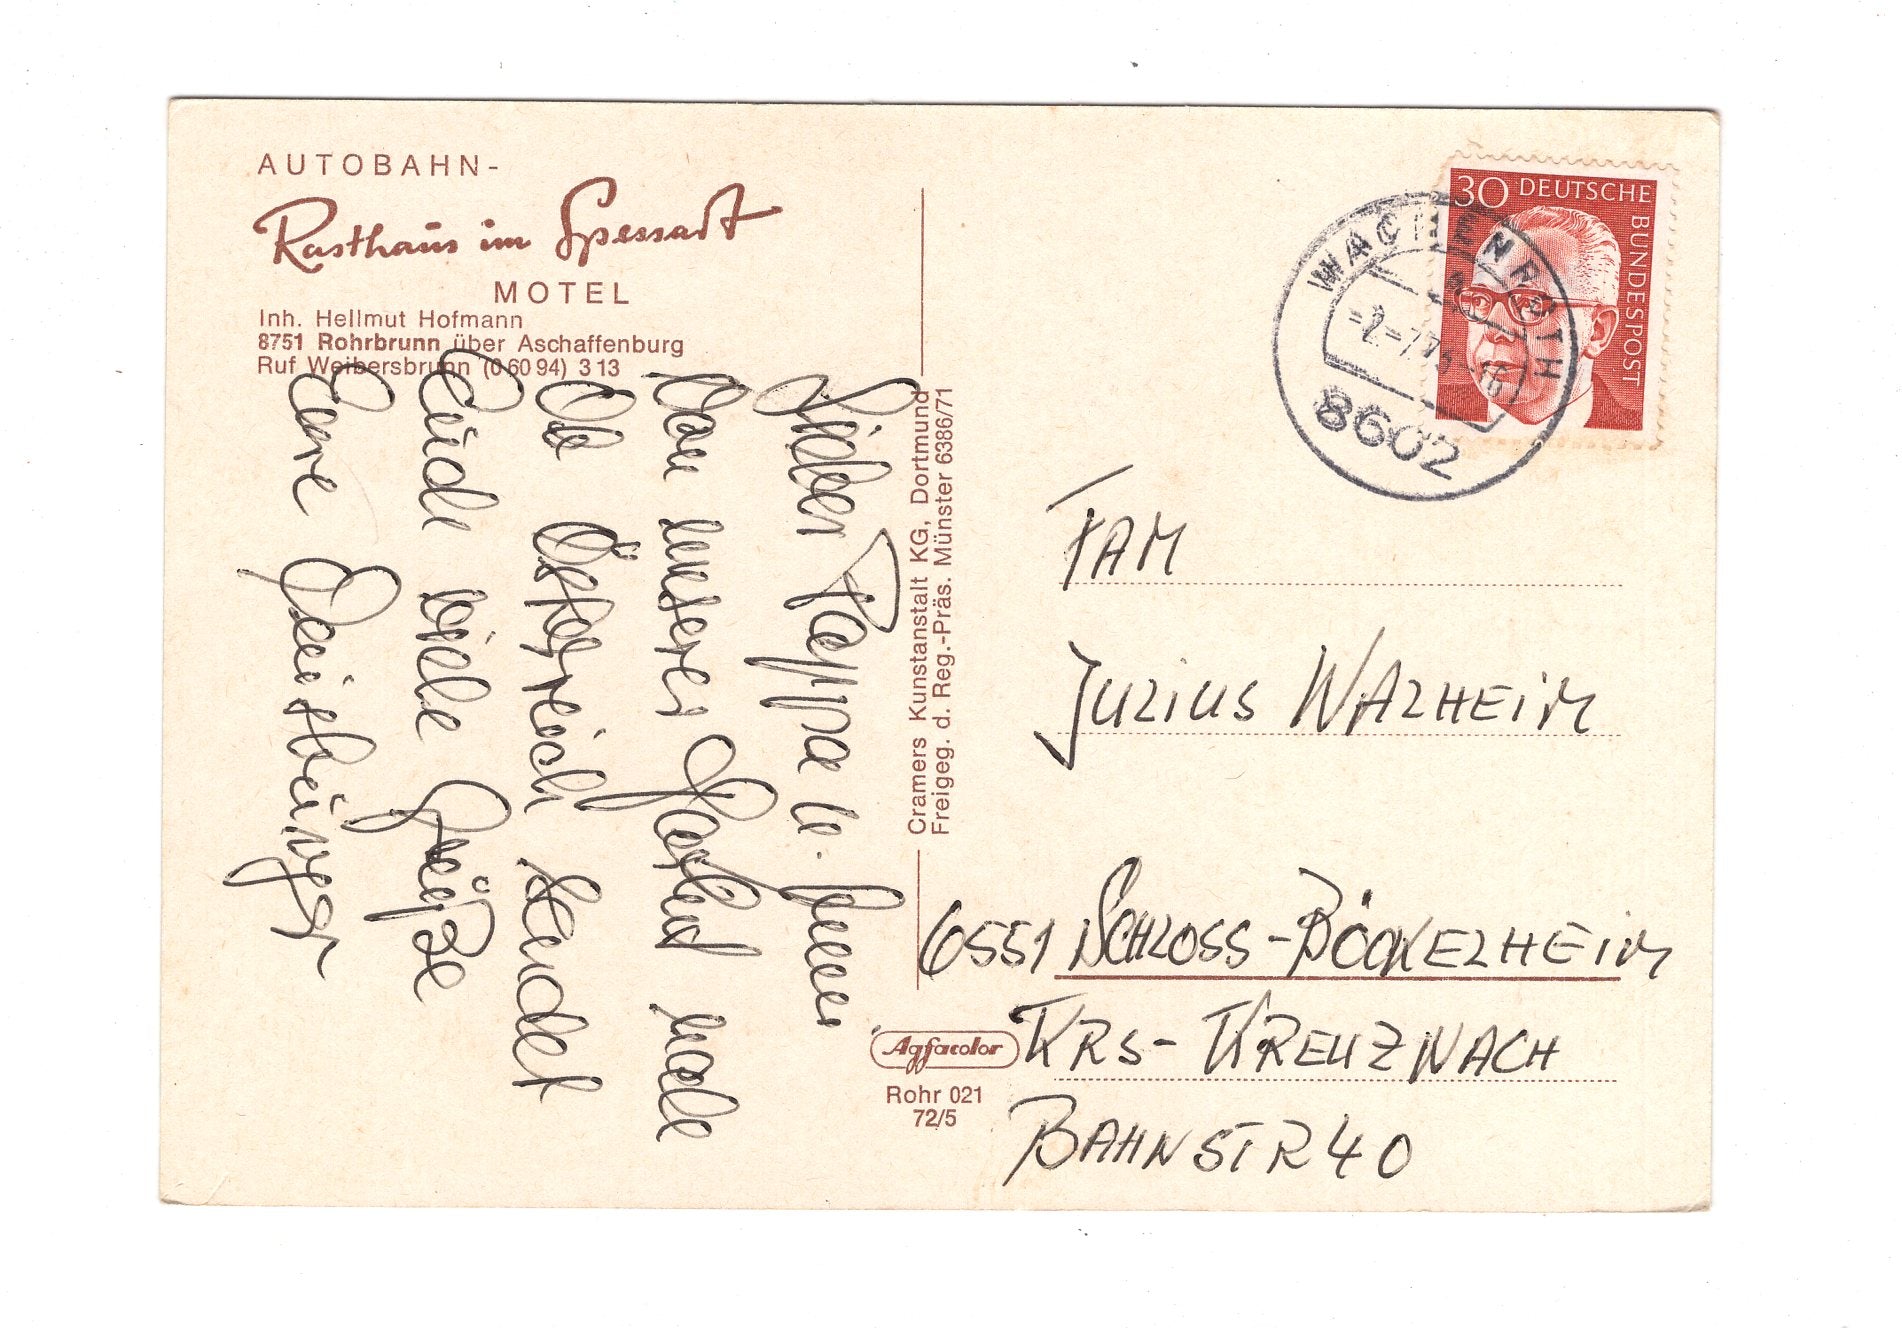 AUTOBAHN-
Rasthaus im Spessart
MOTEL
Inh. Hellmut Hofmann
8751 Rohrbrunn über Aschaffenburg
Ruf Weibersbrunn (0 60 94) 3 13
Lieber Pappa u.
Von unserer Fahrt nach
Österreich sendet
Euch viele Grüße
Eure
Cramers Kunstanstalt KG, Dortmund
Freigeg. d. Reg.-Präs. Münster 6386/71
Agfacolor
Rohr 021
72/5
30 DEUTSCHE BUNDESPOST
WACHENROTH
8602
FAM
JULIUS WALHEIM
6551 SCHLOSS-BÖCKELHEIM
KRS-KREUZNACH
BAHNSTR 40